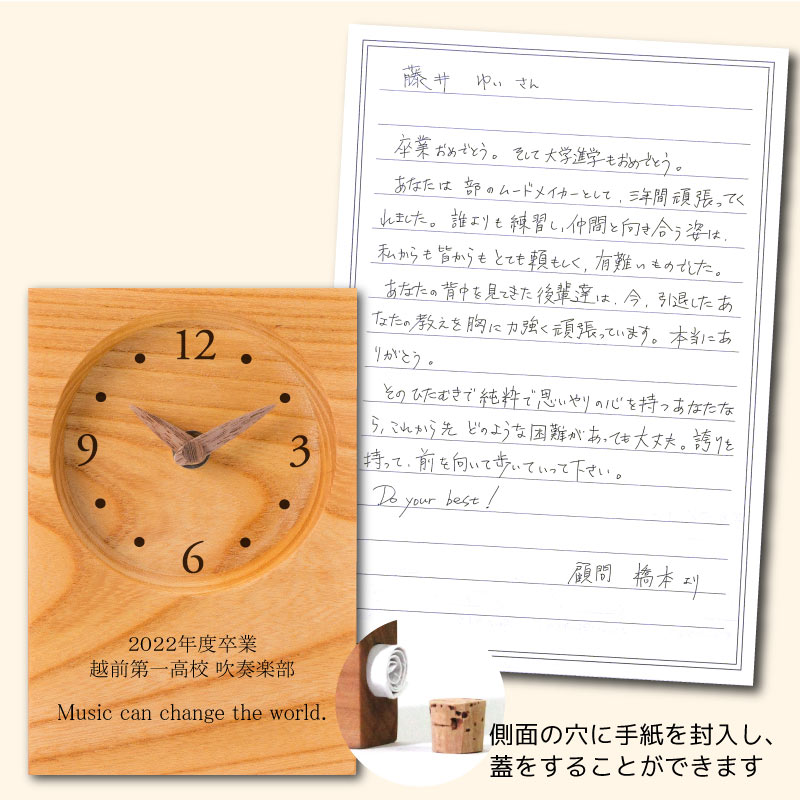 藤井 ゆい さん
卒業おめでとう。そして大学進学もおめでとう。
あなたは 部のムードメイカーとして、三年間頑張ってく
れました。誰よりも練習し、仲間と向き合う姿は、
私からも皆からもとても頼もしく、有難いものでした。
あなたの背中を見てきた後輩達は、今、引退したあ
なたの教えを胸に力強く頑張っています。本当にあ
りがとう。
そのひたむきで純粋で思いやりの心を持つあなたな
ら、これから先 どのような困難があっても大丈夫。誇りを
持って、前を向いて歩いていって下さい。
Do your best!
顧問 橋本より
12
9
3
6
2022年度卒業
越前第一高校 吹奏楽部
Music can change the world.
側面の穴に手紙を封入し、
蓋をすることができます